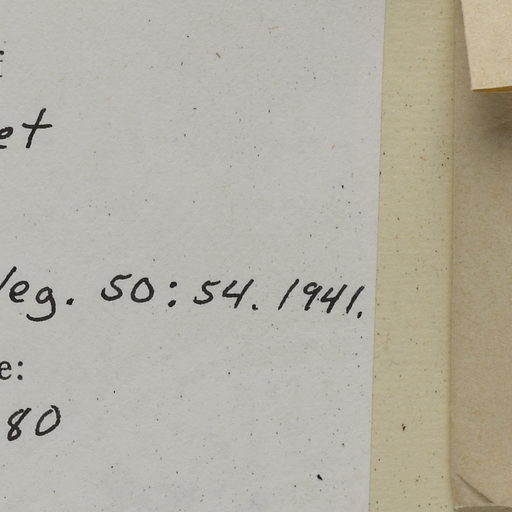 et
Veg. 50:54. 1941.
e:
80